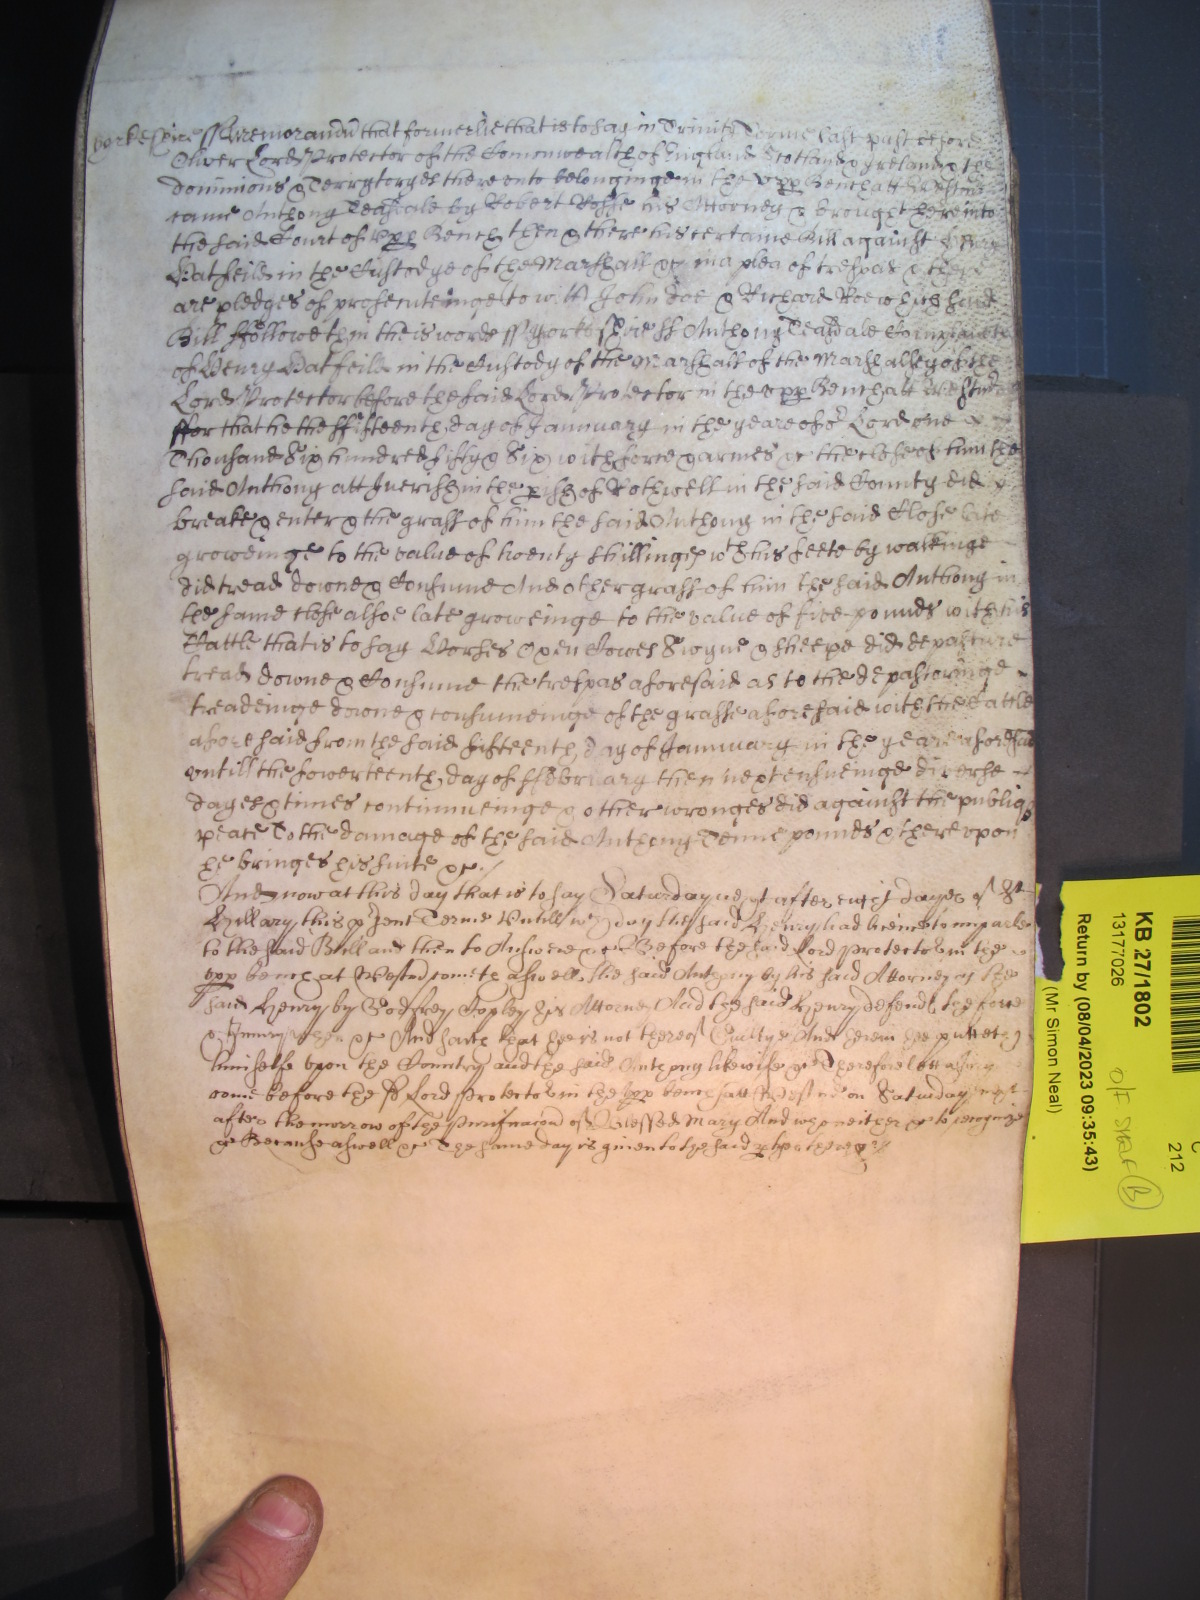 Yorkeshire ss Memorandu that formerlie that is to say in Trinitie Terme last past before
Oliver Lord Protector of the Comonwealth of England Scotland & Ireland & the
dominions & Terrytoryes thereunto belonginge in the vpp Bench att Westm
came Anthony Teasdale by Robert Rosse his Attorney & brought here into
the said Court of vpp Bench then & there his certaine Bill against Henry
Hatfeild in the Custodye of the Marshall &c in a plea of trespas & there
are pledges of prosecuteinge (to witt) John Doe & Richard Roe which said
Bill ffolloweth in theis words ss Yorkshire ss Anthony Teasdale Complaines
of Henry Hatfeild in the Custody of the Marshall of the Marshallsey of the
Lord Protector before the said Lord Protector in the vpp Bench att Westm
ffor that he the ffifteenth day of January in the yeare of or Lord one
Thousand Six hundred fifty & Six with force & armes &c the close of him the
said Anthony att in the pish of Rothwell in the said County did
breake & enter & the grasse of him the said Anthony in the said Close late
groweinge to the value of twenty shillings wth his feete by walkinge
did tread downe & Consume And other grasse of him the said Anthony in
the same close alsoe late groweinge to the value of five pounds with his
Cattle that is to say Horses Oxen Cowes Swyne & sheepe did depasture
tread downe & Consume the trespas aforesaid as to the depastoringe
treadeinge downe & consumeinge of the grasse aforesaid with the Cattle
aforesaid from the said fifteenth day of January in the yeare aforesaid
vntill the fowerteenth day of ffebruary then next ensueinge diverse
dayes & times continueinge & other wronges did against the publiq
peace To the damage of the said Anthony Tenne pounds & therevpon
he bringes his suite &c
And now at this day that is to say Saturday next after eight dayes of St
Hillary this psent Terme Vntill wch day the said Henry had licence to imparle
to the said Bill and then to Answere &c Before the said Lord Protector in the
vpp bench at Westm cometh aswell the said Anthony by his said Attorney as the
said Henry by Godfrey Copley his Attorney And the said Henry defends the force
& Iniury when &c And saith that hee is not thereof Guilty And herein hee putteth
himselfe vpon the Country and the said Anthony likewise &c Therefore lett a Jury
come before the sd Lord Protector in the vpp bench att Westm on Saturday next
after the morrow of the Purificacon of Blessed Mary And who neither &c to recognize
&c Because aswell &c The same day is given to the said pties there &c
KB 27/1802
13177026
Return by (08/04/2023 09:35:43)
(Mr Simon Neal)
C
212
O/F. Staff (B)